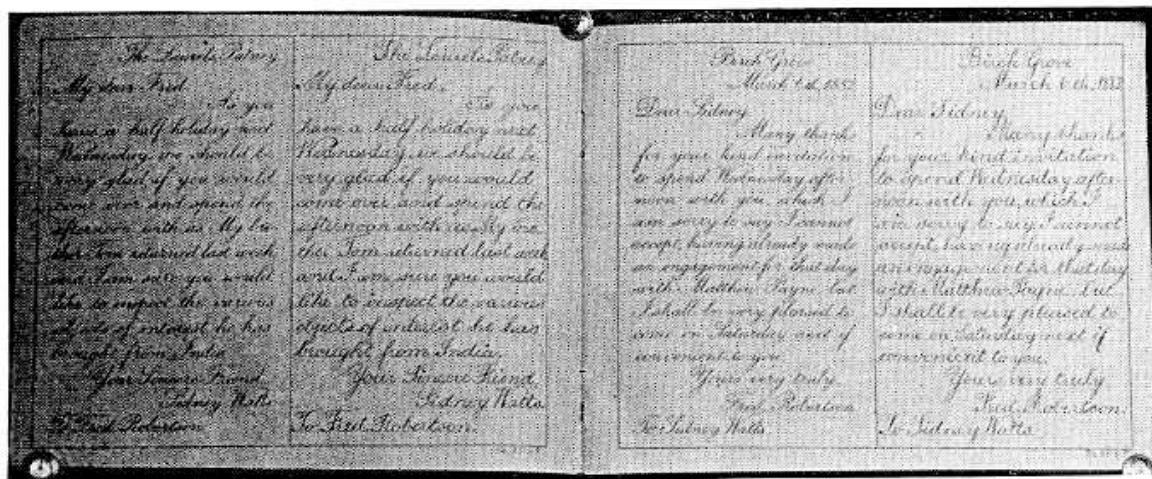 The Laurels Putney
My dear Fred,
As you
have a half holiday next
Wednesday we should be
very glad if you would
come over and spend the
afternoon with us. My bro
ther Tom returned last week
and I am sure you would
like to inspect the various
objects of interest he has
brought from India.
Your Sincere Friend,
Sidney Watts
To Fred Robertson
The Laurels Putney
My dear Fred,
As you
have a half holiday next
Wednesday we should be
very glad if you would
come over and spend the
afternoon with us. My bro
ther Tom returned last week
and I am sure you would
like to inspect the various
objects of interest he has
brought from India.
Your Sincere Friend,
Sidney Watts
To Fred Robertson.
Birch Grove
March 6th, 1882
Dear Sidney
Many thanks
for your kind invitation
to spend Wednesday after
noon with you, which I
am sorry to say I cannot
accept, having already made
an engagement for that day
with Matthew Payne, but
I shall be very pleased to
come on Saturday next if
convenient to you
Yours very truly
Fred Robertson
To Sidney Watts
Birch Grove
March 6th, 1882
Dear Sidney,
Many thanks
for your kind invitation
to spend Wednesday after
noon with you, which I
am sorry to say I cannot
accept, having already made
an engagement for that day
with Matthew Payne, but
I shall be very pleased to
come on Saturday next if
convenient to you.
Yours very truly
Fred Robertson
To Sidney Watts